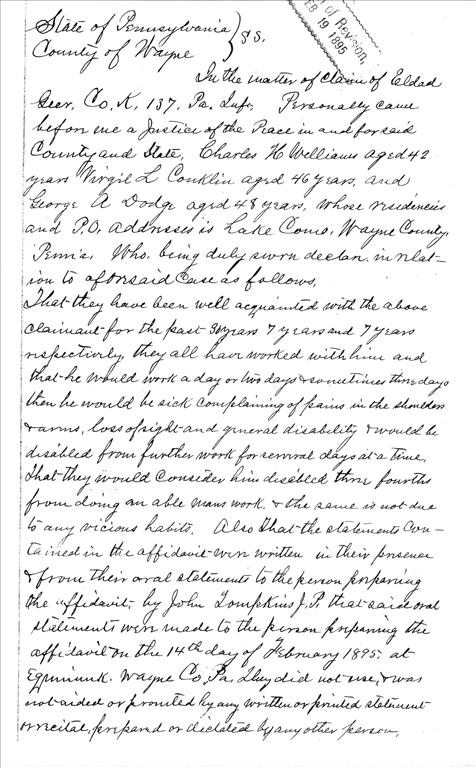 of Revision,
FEB 19 1895
State of Pennsylvania } SS.
County of Wayne
In the matter of claim of Eldad
Geer, Co, K, 137, Pa, Inft, Personally came
before me a Justice of the Peace in and for said
County and State, Charles H Williams aged 42
years Virgil L Conklin aged 46 years, and
George A Dodge aged 48 years, whose residencies
and P.O. addresses is Lake Como, Wayne County,
Penn'a, Who, being duly sworn declare in relat-
ion to aforesaid case as follows,
That they have been well acquainted with the above
claimant for the past years 7 years and 7 years
respectively, they all have worked with him and
that he would work a day or two days & sometimes three days
then he would be sick complaining of pains in the shoulders
& arms, loss of sight and general disability & would be
disabled from further work for several days at a time,
that they would consider him disabled three fourths
from doing an able mans work, & the same is not due
to any vicious habits. Also that the statements Con-
tained in the affidavit were written in their presence
& from their oral statements to the person preparing
the affidavit, by John Tompkins J, P, that said oral
statements were made to the person preparing the
affidavit on the 14th day of February 1895, at
Equinunk, Wayne Co, Pa, They did not use, & was
not aided or promted by any written or printed statement
or recital, prepared or dictated by any other person,